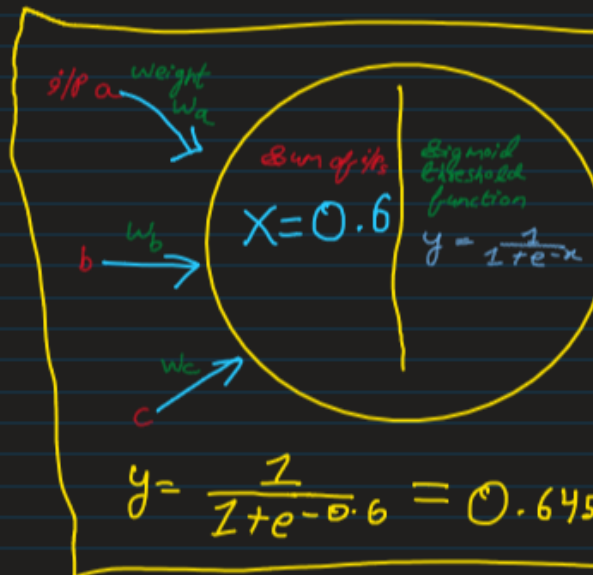 i/p a
weight
Wa
Sum of i/ps
X=0.6
Sigmoid
threshold
function
y = 1/1+e-x
b
Wb
Wc
c
y= 1/1+e-0.6 = 0.645